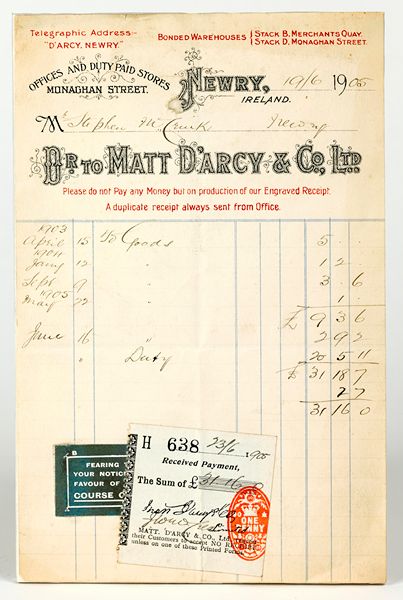 Telegraphic Address-
"D'ARCY, NEWRY."
BONDED WAREHOUSES { STACK B. MERCHANTS QUAY.
STACK D. MONAGHAN STREET.
OFFICES AND DUTY PAID STORES
MONAGHAN STREET.
NEWRY,
IRELAND.
19/6 1905
Mr Stephen Mc Newry
DR. TO MATT D'ARCY & CO. LTD
Please do not Pay any Money but on production of our Engraved Receipt.
A duplicate receipt always sent from Office.
1903
April 15 To Goods 5 . .
1904
12 " 12 . .
Sept 9 " 3 . 6
1905
May 22 " 1 . .
£ 9 3 6
June 16 " 2 9 2
" Duty 20 5 11
£ 31 18 7
2 7
31 16 0
B
FEARING
YOUR NOTICE
FAVOUR OF
COURSE O
H 638 23/6 1905
Received Payment,
The Sum of £ 31-16-0
ONE
PENNY
MATT. D'ARCY & CO., Ltd.
their Customers to accept NO
unless on one of these Printed Forms.